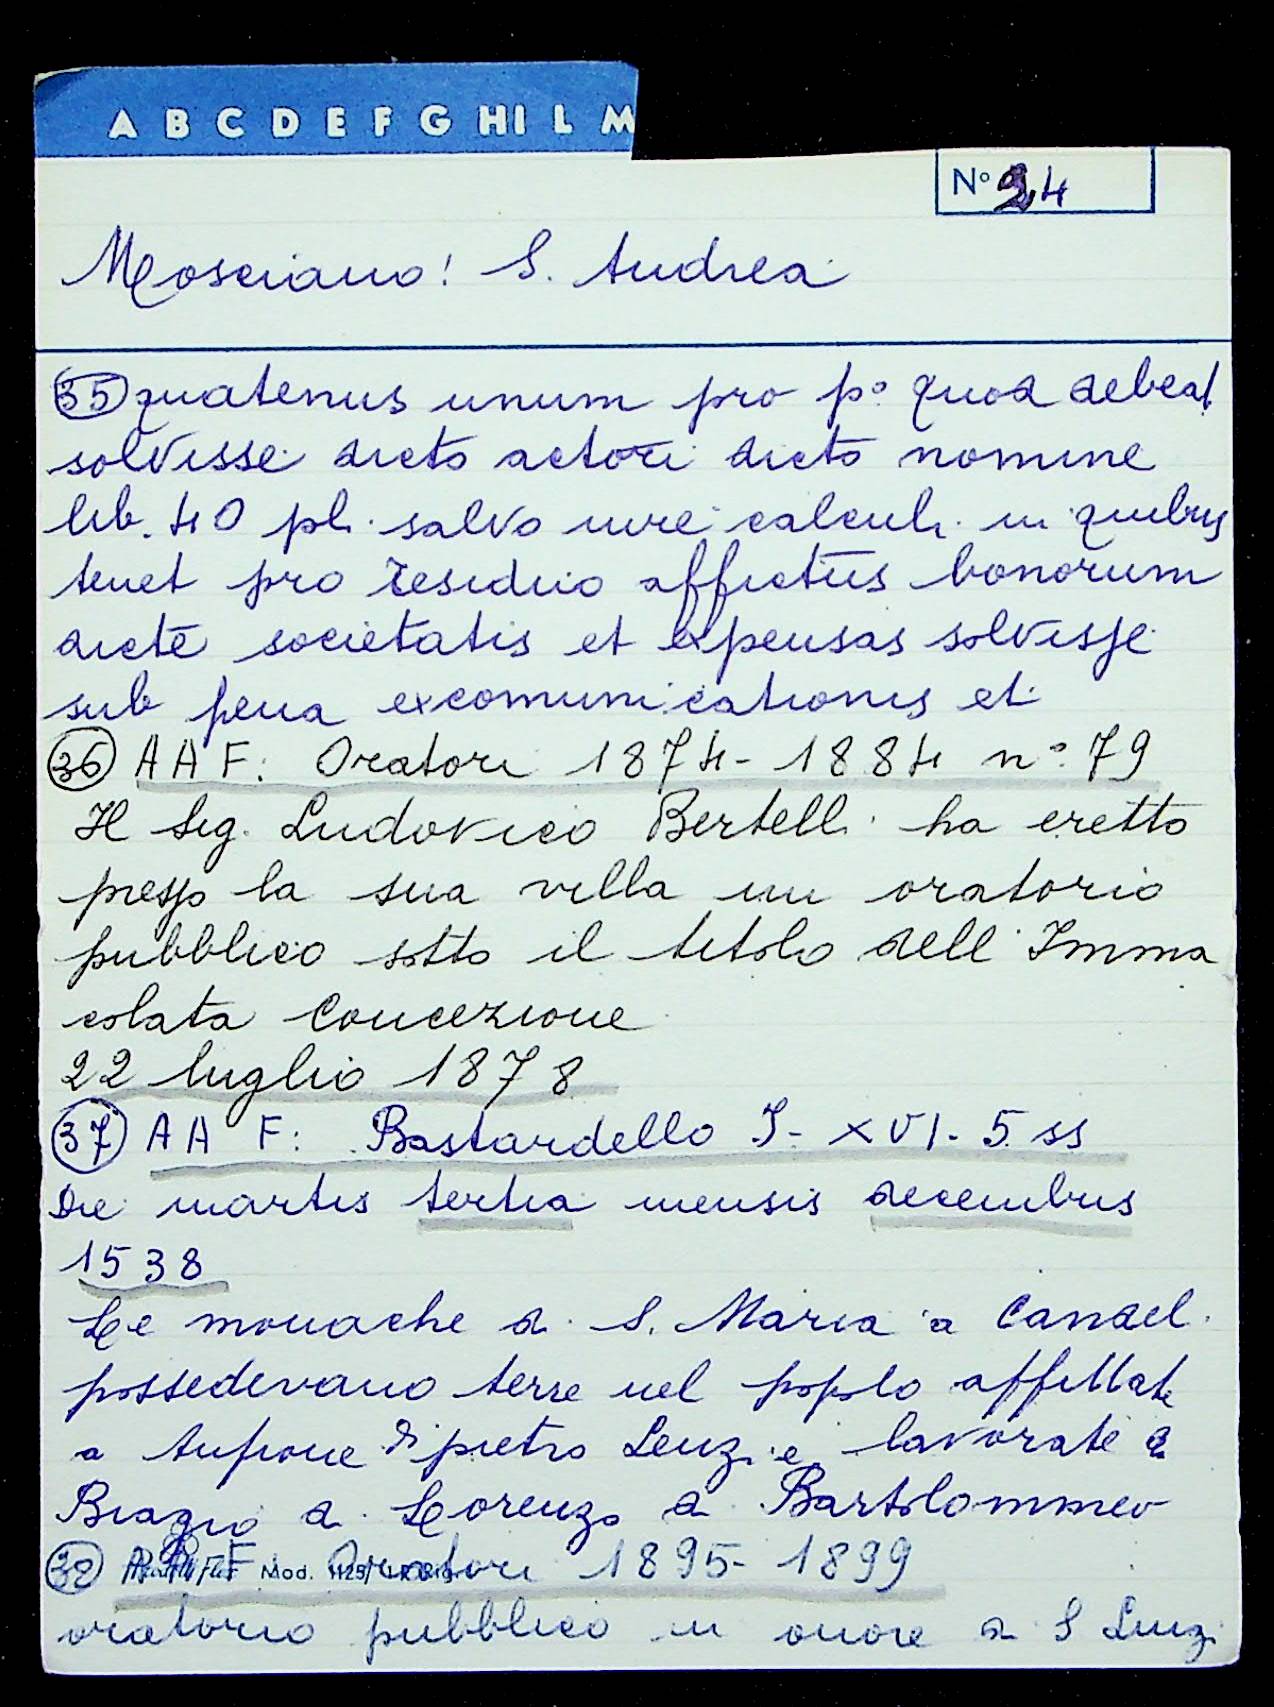 A B C D E F G H I L M
N° 24
Mosciano: S. Andrea
35 quatenus unum pro p° quod debeat
solvisse dicto actori dicto nomine
lib. 40 pl. salvo iure calculi in quibus
tenet pro residuo affictus bonorum
dicte societatis et expensas solvisse
sub pena excomunicationis et
36 AAF: Oratori 1874-1884 n° 79
Il Sig. Ludovico Bertelli ha eretto
presso la sua villa un oratorio
pubblico sotto il titolo dell'Imma
colata Concezione
22 luglio 1878
37 AAF: Bastardello I-XVI. 5 ss
Die martis tertia mensis decembris
1538
Le monache di S. Maria a Candeli
possedevano terre nel popolo affittate
a di pietro Lenzi e lavorate da
Biagio di Lorenzo di Bartolommeo
38 AAF Oratori 1895-1899
oratorio pubblico in onore di S Luigi